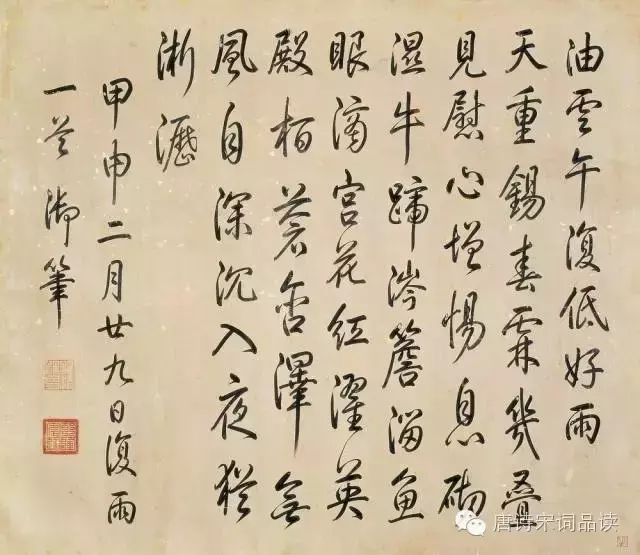 油雲午復低好雨
天重錫春霖幾疊
見慰心增惕息砌
濕牛蹄涔簷溜魚
眼滴宮花紅濯英
殿柏蒼含澤無
風自深沉入夜猶
淅瀝
甲申二月廿九日復雨
一首御筆
唐诗宋词品读